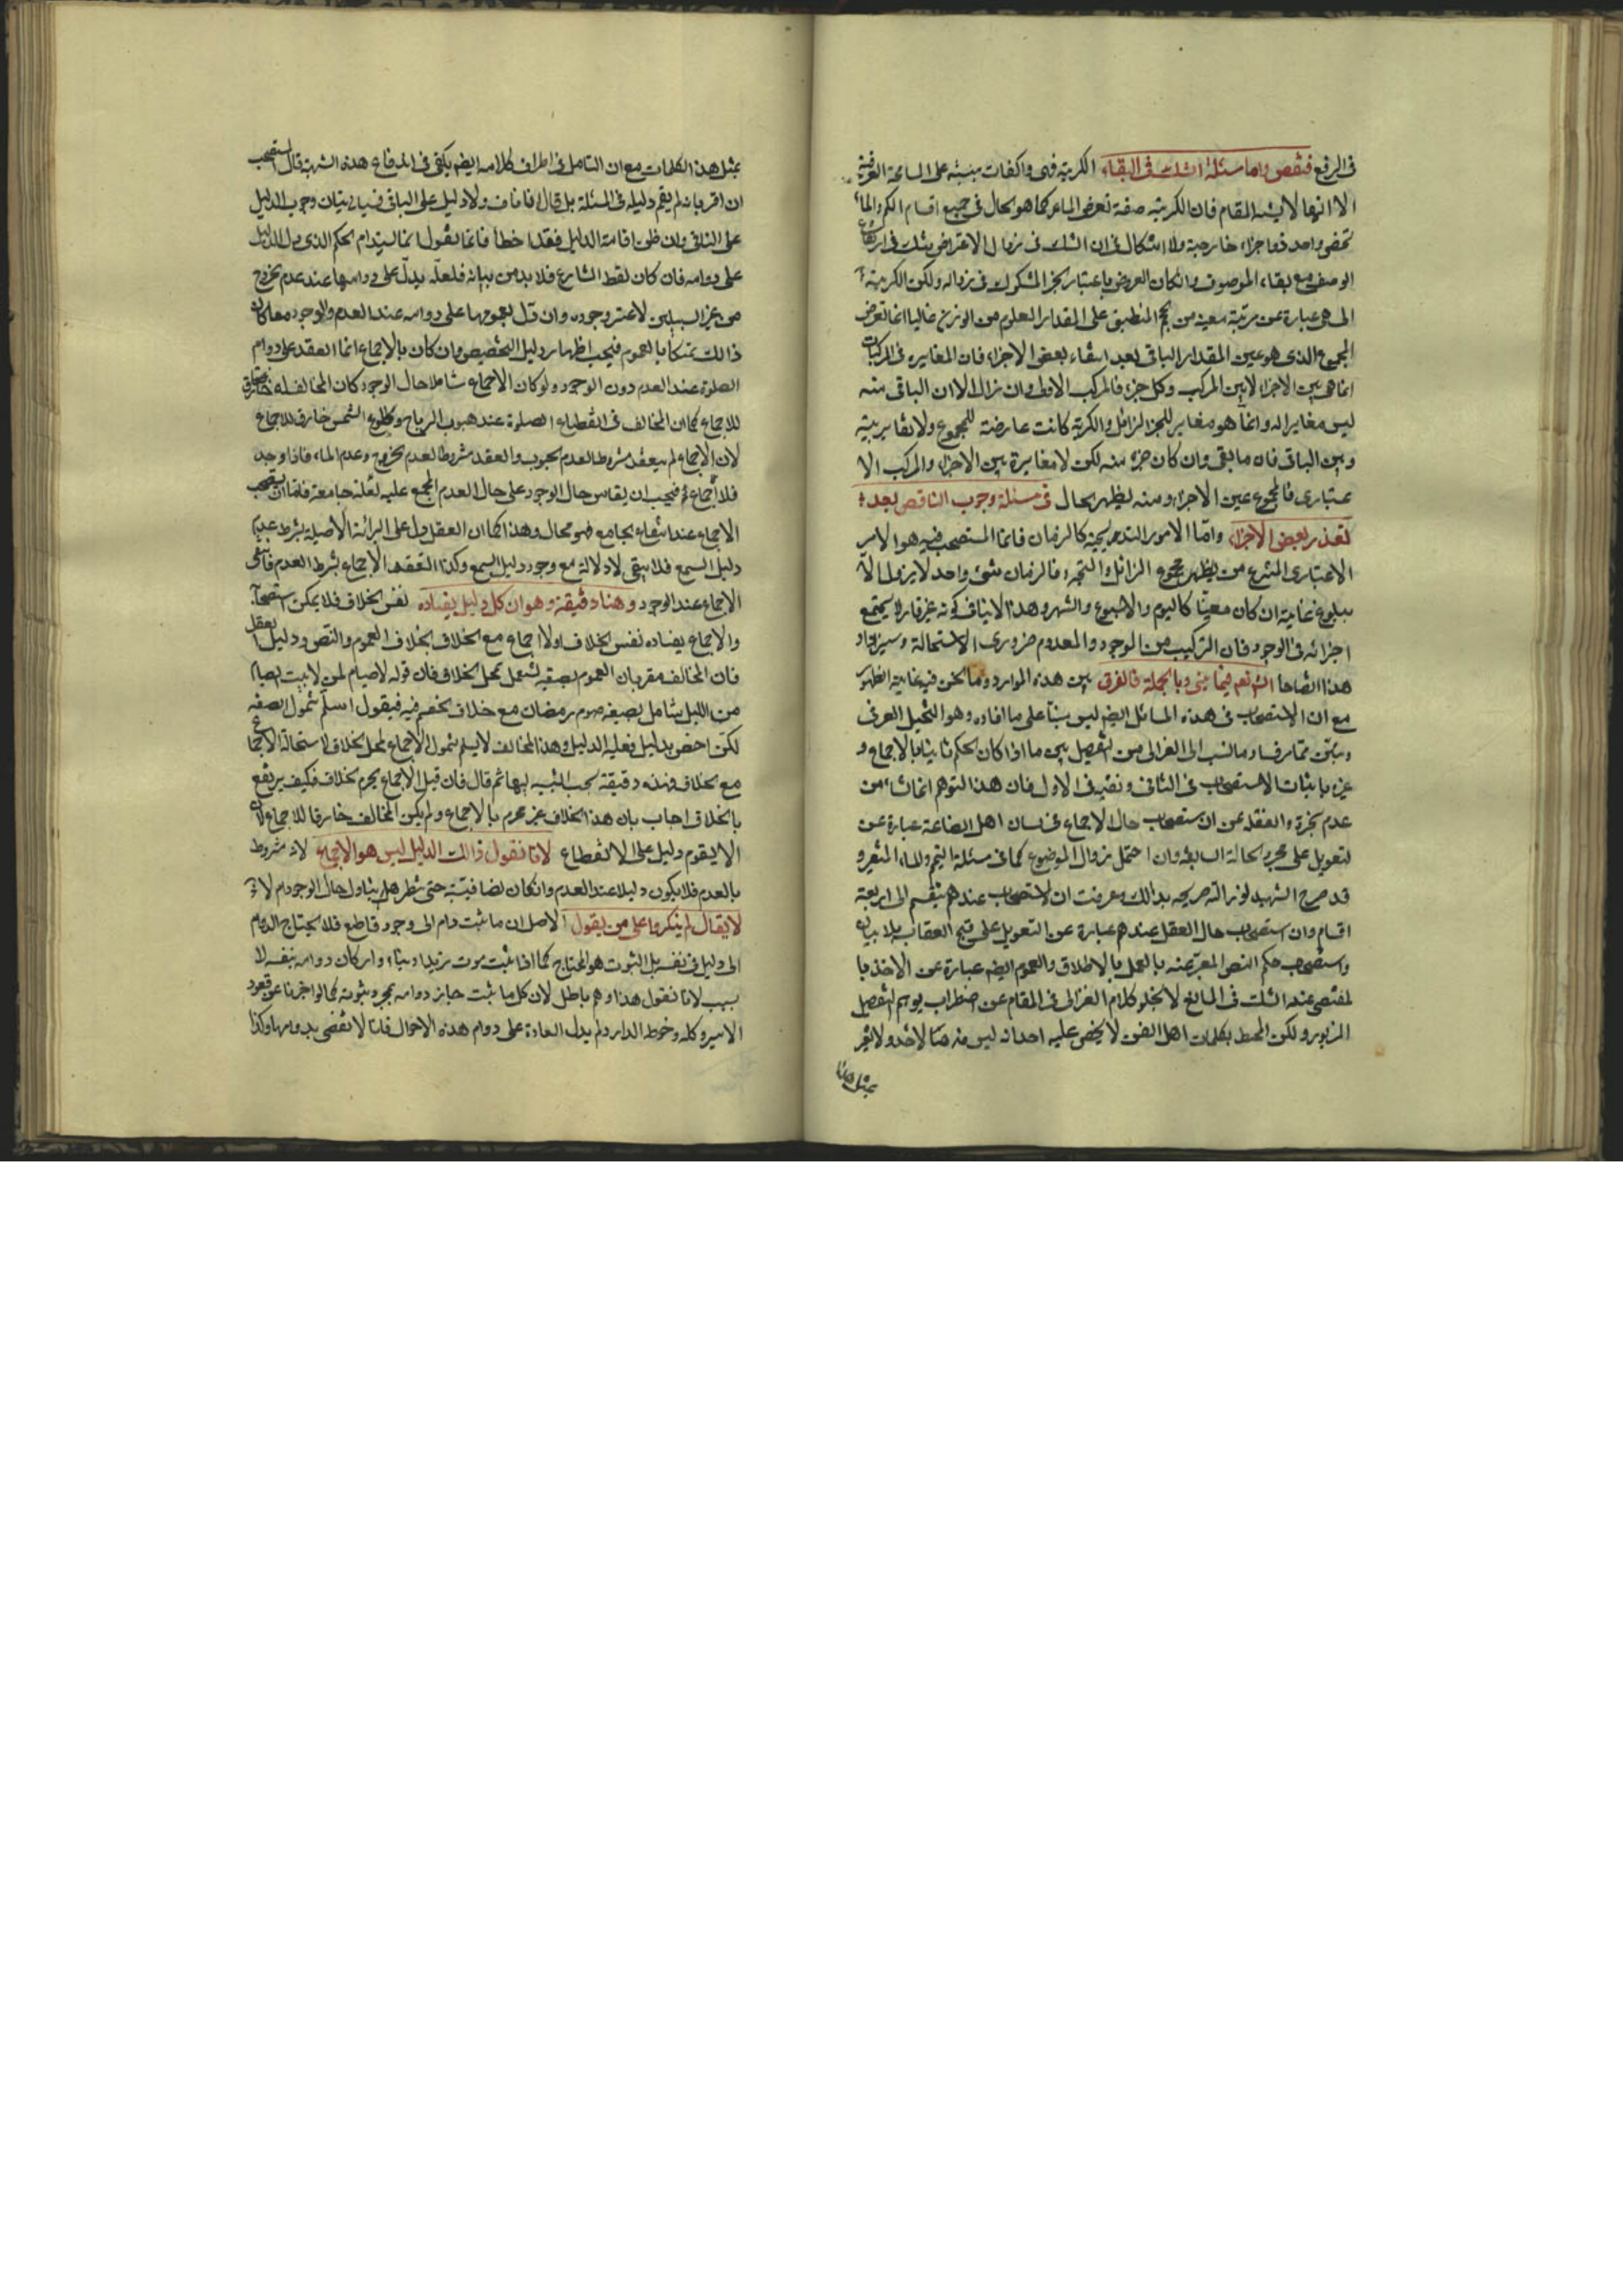 في الرفع فنقص واما مسئلة الشك في البقاء الكرية فهى واكفات مبنية على المسامحة العرفية
الا انها لا يشبه المقام فان الكرية صفة تعرض الماء كما هو الحال في جميع اقسام الكم والماء
شخص واحد ذو اجزاء خارجية ولا اشكال في ان الشك في زوال الاعتراض يشك في ارتفاع
الوصف مع بقاء الموصوف وان كان العروض باعتبار الجزء المشكوك في زواله ولكن الكرية
التي هي عبارة عن مرتبة معينة من الحجم المنطبق على المقدار المعلوم من الوزن غالبا انما تعرض
المجموع الذي هو عين المقدار الباقي بعد انتفاء بعض الاجزاء فان المغايرة في المركبات
انما هي بين الاجزاء لا بين المركب وكل جزء فالمركب الاول وان زال الا ان الباقي منه
ليس مغايرا له وانما هو مغاير للجزء الزائل والكرية كانت عارضة للمجموع ولا تغاير بينه
وبين الباقي فان ما بقي وان كان جزء منه لكن لا مغايرة بين الاجزاء والمركب الا
عتباري فالمجموع عين الاجزاء ومنه يظهر الحال في مسئلة وجوب الناقص بعد
تعذر بعض الاجزاء واما الامور التدريجية كالزمان فانما المستصحب فيه هو الامر
الاعتباري المنتزع من مجموع الزائل والمتجدد فالزمان شئ واحد لا يزول الا
ببلوغ غايته ان كان معينا كاليوم والاسبوع والشهر وهذا لا ينافي كونه غير قار لا يجتمع
اجزائه في الوجود فان التركيب من الموجود والمعدوم ضروري الاستحالة وسيزداد
هذا اتضاحا انشاء الله تعالى فيما ياتي وبالجملة فالفرق بين هذه الموارد وما نحن فيه في غاية الظهور
مع ان الاستصحاب في هذه المسائل ايضا ليس مبنيا على ما افاده وهو التخيل العرفي
وتبين مما مر فساد ما نسب الى الغزالي من التفصيل بين ما اذا كان الحكم ثابتا بالاجماع و
غيره باثبات الاستصحاب في الثاني ونفيه في الاول فان هذا التوهم انما نشاء من
عدم الخبرة والغفلة عن ان استصحاب حال الاجماع في لسان اهل الصناعة عبارة عن
التعويل على مجرد الحالة السابقة وان احتمل زوال الموضوع كما في مسئلة التيمم والماء المتغير و
قد صرح الشهيد نور الله ضريحه بذلك وعرفت ان الاستصحاب عندهم ينقسم الى اربعة
اقسام وان استصحاب حال العقل عندهم عبارة عن التعويل على قبح العقاب بلا بيان
واستصحاب حكم النص المعبر عنه بالعمل بالاطلاق والعموم ايضا عبارة عن الاخذ با
لمقتضي عند الشك في المانع لا يخلو كلام الغزالي في المقام عن اضطراب يوهم التفصيل
المزبور ولكن المحيط بكلمات اهل الفن لا يخفى عليه احداث ليس منه هنا لاحد ولا يغر
بمثل هذا
بمثل هذا الكلمات مع ان التامل في اطراف كلامه ايضا يكفي في اندفاع هذه الشبهة قال المستصحب
ان اقر بانه لم يقم دليله في المسئلة بل قال انا ناف ولا دليل على النافي فسياتي بيان وجوب الدليل
على النافي وان ظن اقامة الدليل فقد اخطا فانما نقول انما يستدام الحكم الذي دل الدليل
على دوامه فان كان لفظ الشارع فلا بد من بيانه فلعله يدل على دوامها عند عدم الخروج
من غير السبيلين لا عند وجوده وان دل بعمومها على دوامه عند العدم والوجود معا كان
ذلك تمسكا بالعموم فيجب اظهار دليل التخصيص وان كان بالاجماع انما انعقد على دوام
الصلوة عند العدم دون الوجود ولو كان الاجماع شاملا حال الوجود كان المخالف له خارقا
للاجماع كما ان المخالف في انقطاع الصلوة عند هبوب الرياح وطلوع الشمس خارق للاجماع
لان الاجماع لم ينعقد مشروطا بعدم الهبوب وانعقد مشروطا بعدم الخروج وعدم الماء فاذا وجد
فلا اجماع فيجب ان يقاس حال الوجود على حال العدم المجمع عليه لعلة جامعة فاما ان يستصحب
الاجماع عند انتفاء الجامع فهو محال وهذا كما ان العقل دل على البرائة الاصلية بشرط عدم
دليل السمع فلا يبقى له دلالة مع وجود دليل السمع وكذا انعقد الاجماع بشرط العدم فانتفى
الاجماع عند الوجود وهنا دقيقة وهو ان كل دليل يضاده نفس الخلاف فلا يمكن استصحابه
والاجماع يضاده نفس الخلاف اذ لا اجماع مع الخلاف بخلاف العموم والنص ودليل العقل
فان الخلاف لا يضاده فان المخالف مقر بان العموم بصيغته يشمل محل الخلاف فان قوله لا صيام لمن لا يبيت الصيام
من الليل شامل بصيغه صوم رمضان مع خلاف الخصم فيه فيقول اسلم شمول الصيغه
لكن اخصه بدليل فعليه الدليل وهذا المخالف لا يسلم شمول الاجماع لمحل الخلاف لاستحالة الاجماع
مع الخلاف فهذه دقيقة يجب التنبيه لها ثم قال فان قيل الاجماع يحرم الخلاف فكيف يرتفع
بالخلاف اجاب بان هذا الخلاف غير محرم بالاجماع ولم يكن المخالف خارقا للاجماع
الا يقوم دليل على الانقطاع لانا نقول ذلك الدليل ليس هو الاجماع لانه مشروط
بالعدم فلا يكون دليلا عند العدم وان كان نصا فبينه حتى ننظر هل يتناول حال الوجود ام لا
لا يقال لم ينكروا على من يقول الاصل ان ما ثبت دام الى وجود قاطع فلا يحتاج الدوام
الى دليل في نفسه بل الثبوت هو المحتاج كما اذا ثبت موت زيد او بناء دار كان دوامه بنفسه لا
بسبب لانا نقول هذا وهم باطل لان كل ما ثبت جايز دوامه بمجرد ثبوته كما لو اخبرنا عن قعود
الامير وكله وخوطه الدار ولم يدل العادة على دوام هذه الاحوال فانا لا نقضي بدوامها وكذا